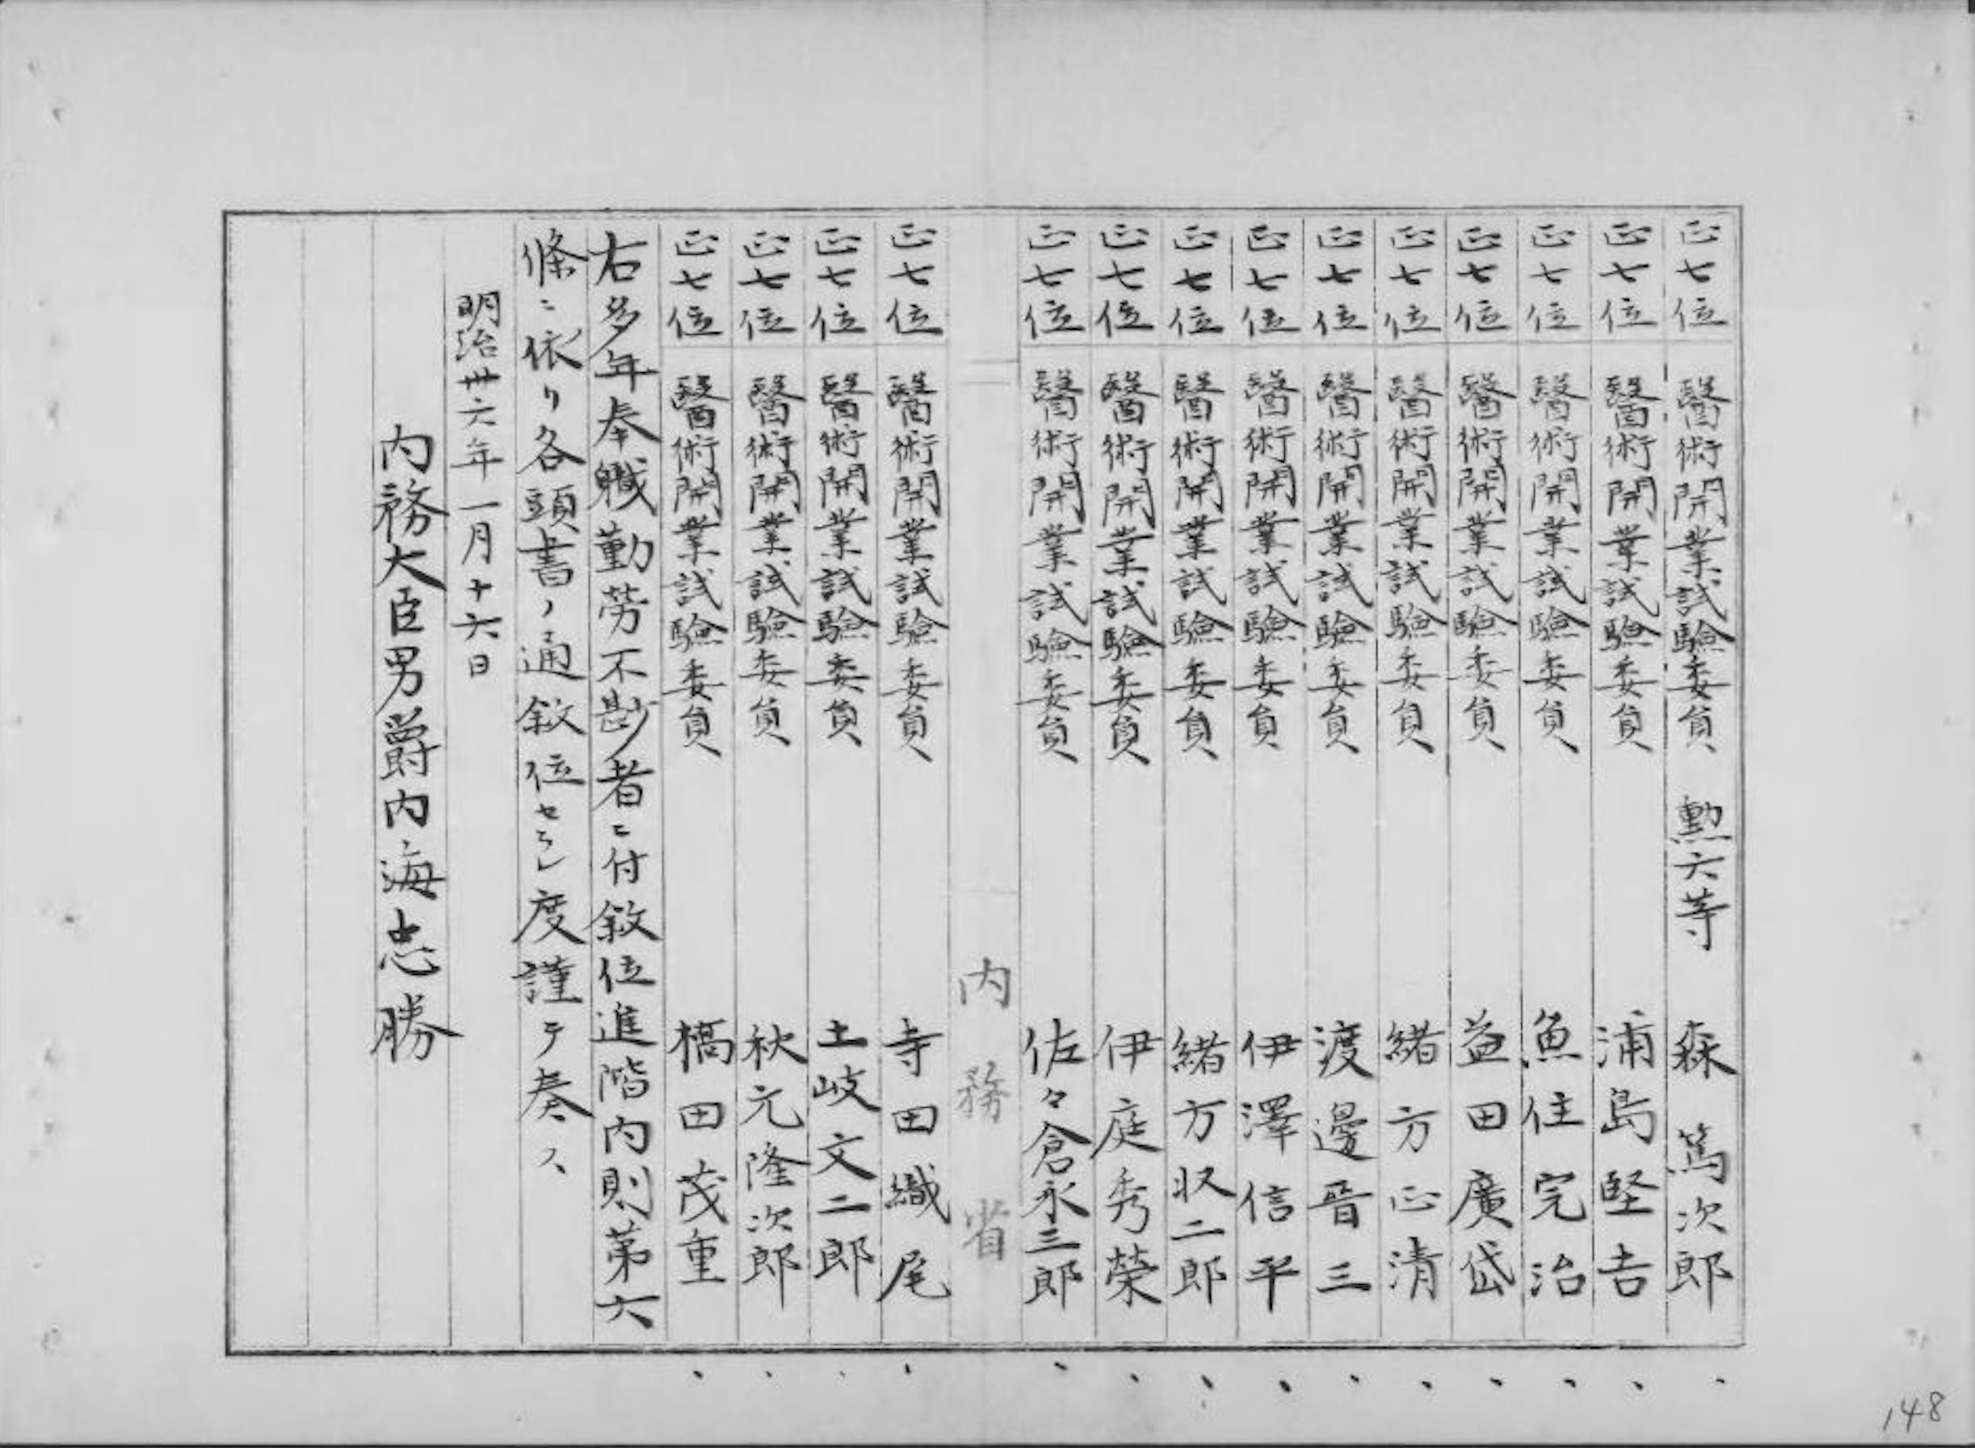 正七位 醫術開業試驗委員 勲六等 森篤次郎
正七位 醫術開業試驗委員 浦島堅吉
正七位 醫術開業試驗委員 魚住完治
正七位 醫術開業試驗委員 益田廣岱
正七位 醫術開業試驗委員 緒方正清
正七位 醫術開業試驗委員 渡邊晋三
正七位 醫術開業試驗委員 伊澤信平
正七位 醫術開業試驗委員 緒方収二郎
正七位 醫術開業試驗委員 伊庭秀榮
正七位 醫術開業試驗委員 佐々倉永三郎
内務省
正七位 醫術開業試驗委員 寺田織尾
正七位 醫術開業試驗委員 土岐文二郎
正七位 醫術開業試驗委員 秋元隆次郎
正七位 醫術開業試驗委員 橋田茂重
右多年奉職勤勞不尠者ニ付敘位進階内則第六
條ニ依リ各頭書ノ通敘位セラレ度謹テ奏ス
明治卅六年一月十六日
内務大臣男爵内海忠勝
148